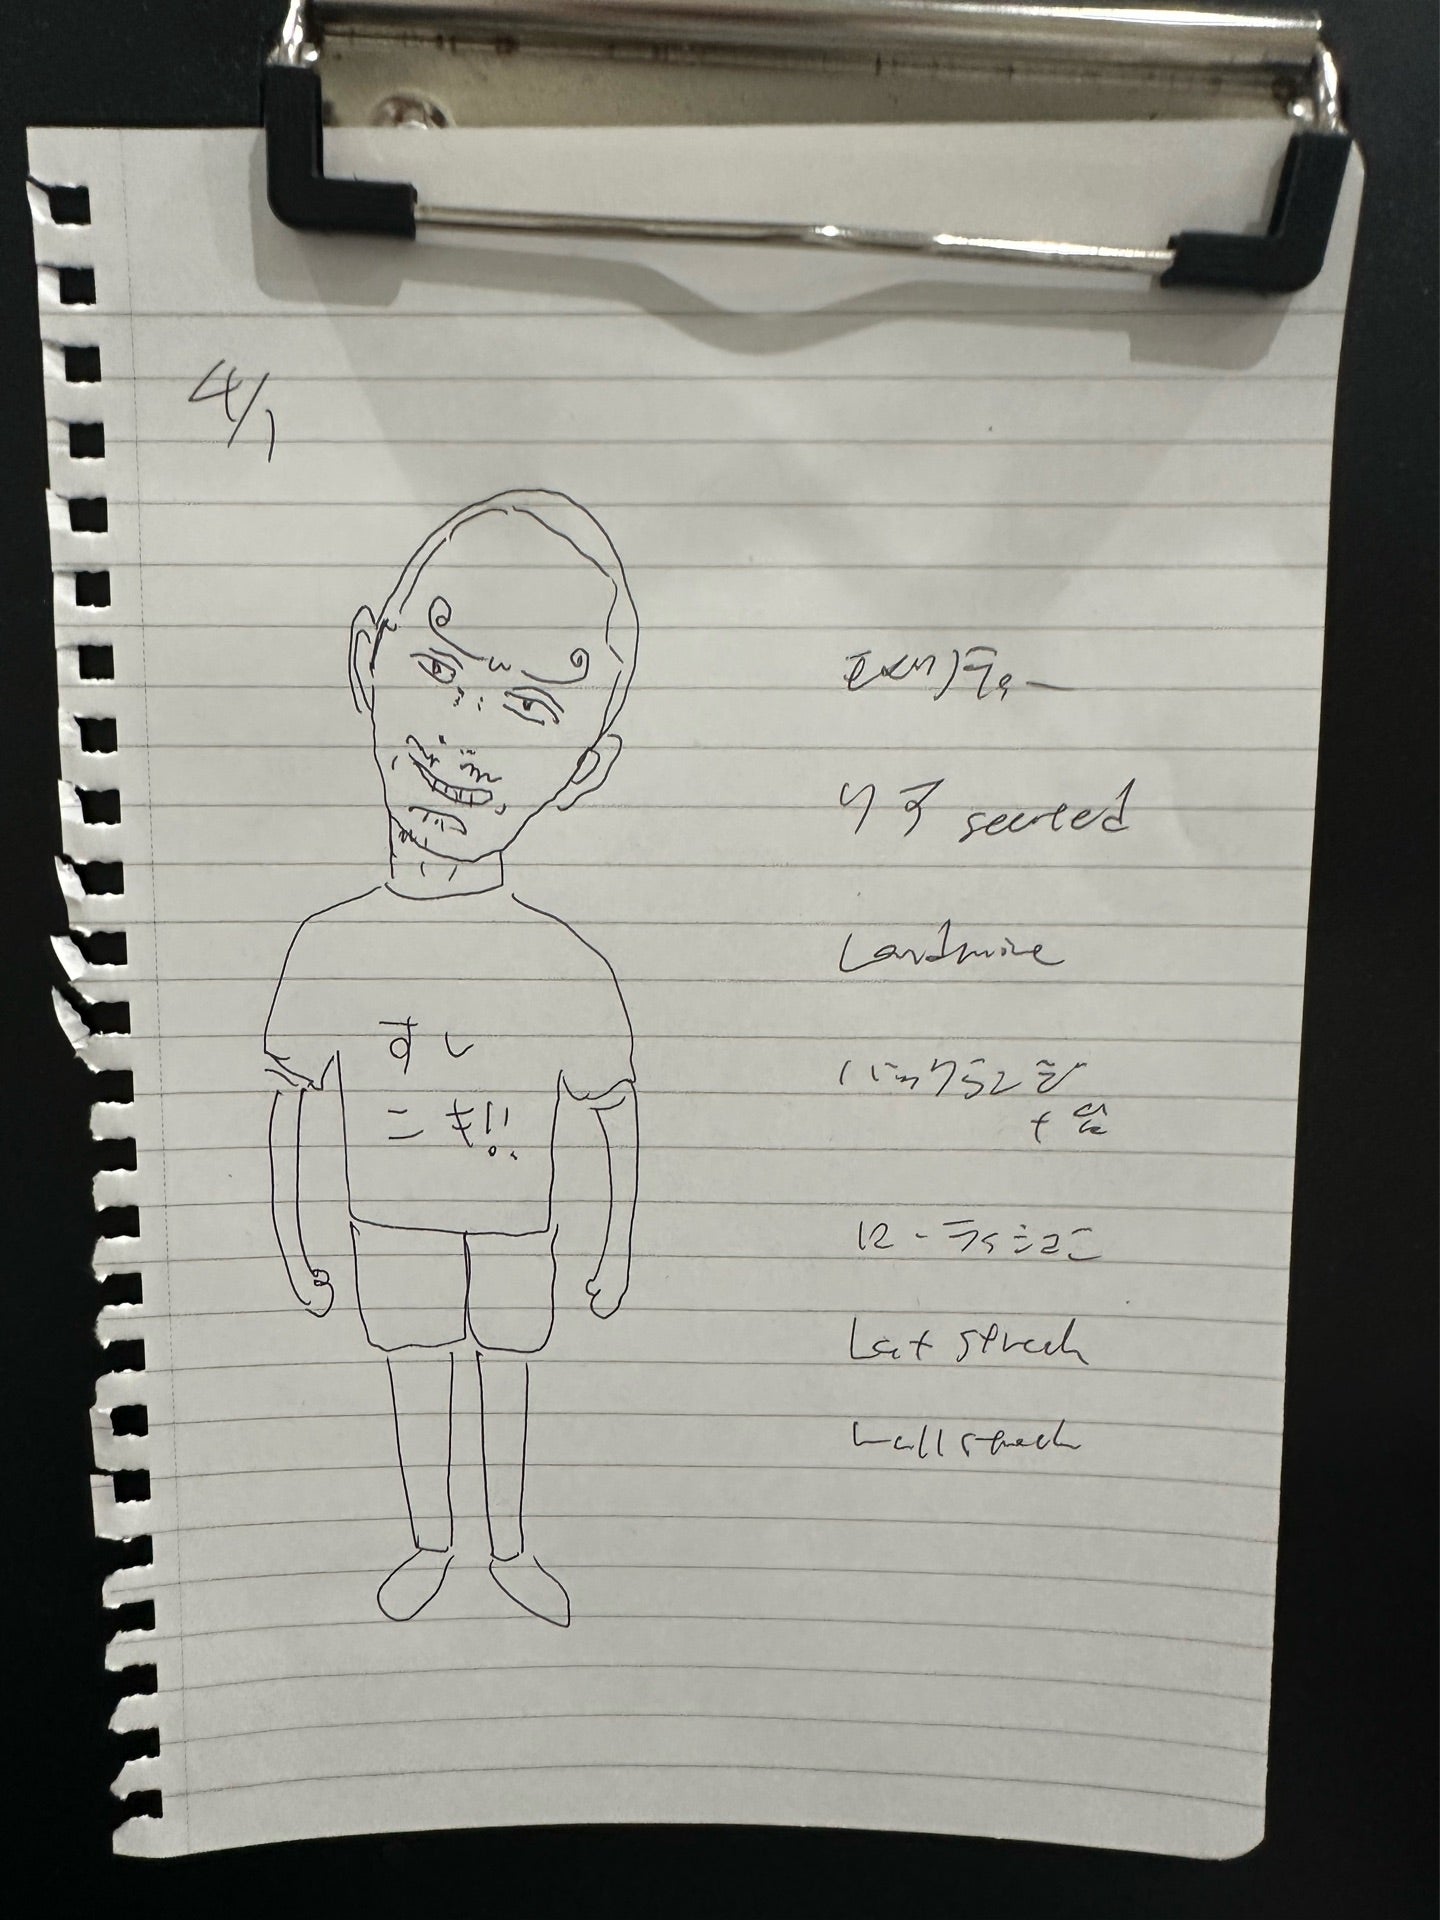 4/1
モビリティー
リブ seated
Landmine
すし
バックランジ
こも!!
ローテーション
Lat stretch
wall stretch